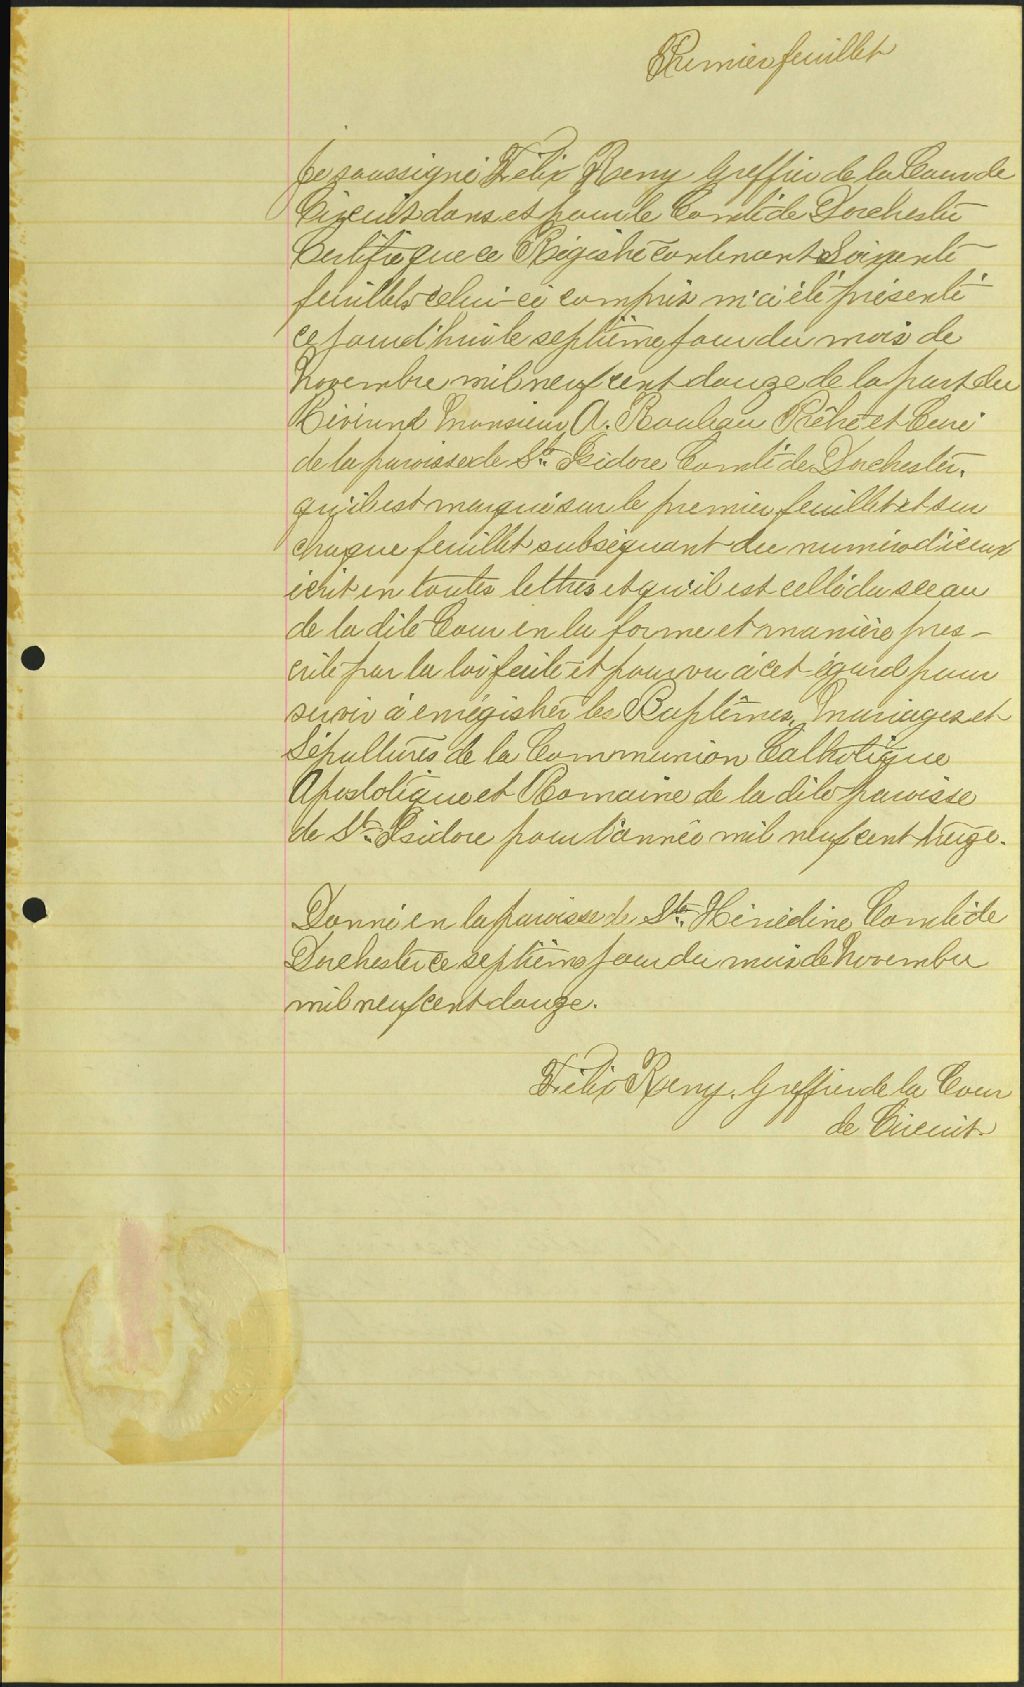 Premier feuillet
Je soussigné Félix Remy Greffier de la Cour de
Circuit dans et pour le Comté de Dorchester
Certifie que ce Régistre contenant Soixante
feuillets celui-ci compris m'a été présenté
ce jourd'hui le septième jour du mois de
Novembre mil neuf cent douze de la part du
Révérend Monsieur A. Rouleau Prêtre et Curé
de la paroisse de St. Isidore Comté de Dorchester,
qu'il est marqué sur le premier feuillet et sur
chaque feuillet subséquant du numéro d'iceux
écrit en toutes lettres et qu'il est cellé du sceau
de la dite Cour en la forme et manière pres-
crite par la loi faite et pourvu à cet égard pour
servir à enrégistrer les Baptêmes, Mariages et
Sépultures de la Communion Catholique
Apostolique et Romaine de la dite paroisse
de St. Isidore pour l'année mil neuf cent treize.
Donné en la paroisse de Ste. Hénédine Comté de
Dorchester ce septième jour du mois de Novembre
mil neuf cent douze.
Félix Remy. Greffier de la Cour
de Circuit.